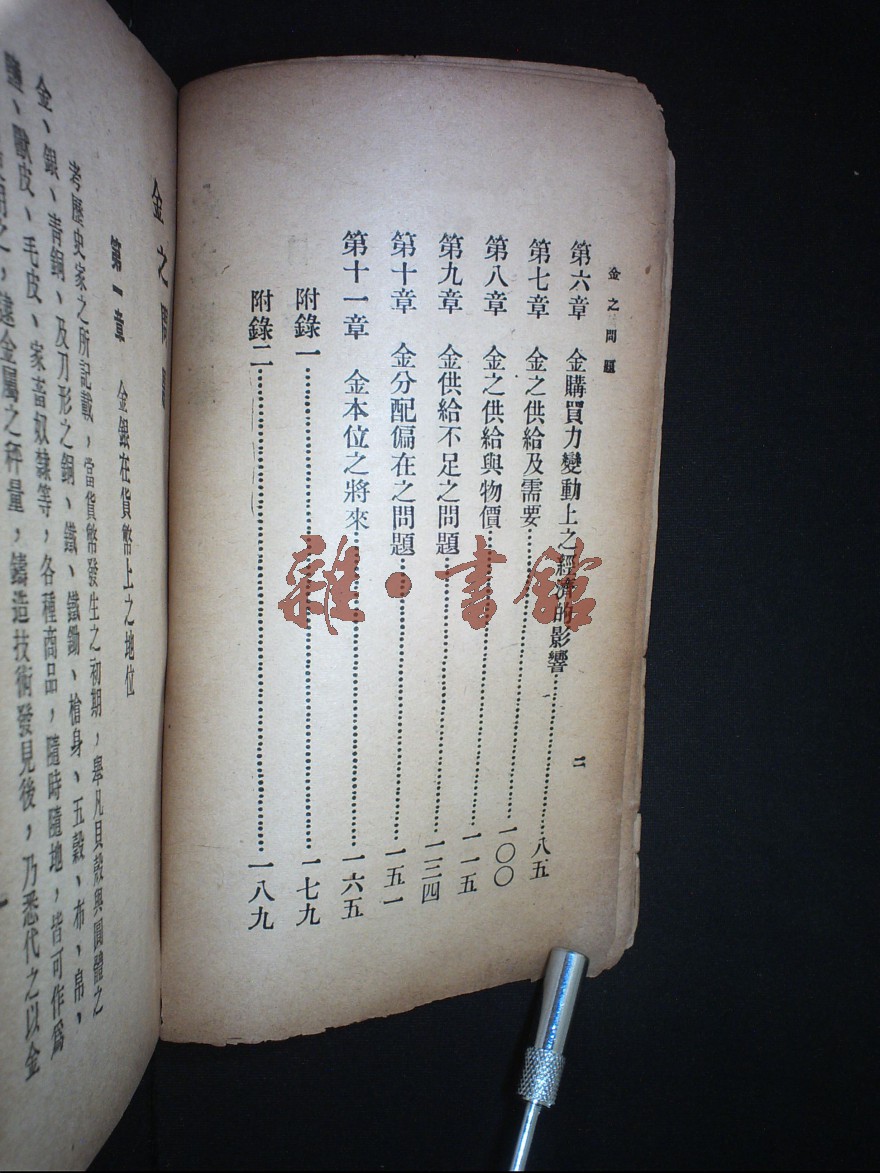 金之問題
二
第六章　金購買力變動上之經濟的影響……八五
第七章　金之供給及需要……一〇〇
第八章　金之供給與物價……一一五
第九章　金供給不足之問題……一三四
第十章　金分配偏在之問題……一五一
第十一章　金本位之將來……一六五
附錄一……一七九
附錄二……一八九
雜·書館
金之問題
第一章　金銀在貨幣上之地位
考歷史家之所記載，當貨幣發生之初期，舉凡貝殼與圓體之
金、銀、青銅、及刀形之銅、鐵、鐵鋤、槍身、五穀、布、帛，
鹽、獸皮、毛皮、家畜奴隸等，各種商品，隨時隨地，皆可作爲
用之，逮金屬之秤量，鑄造技術發見後，乃悉代之以金
一